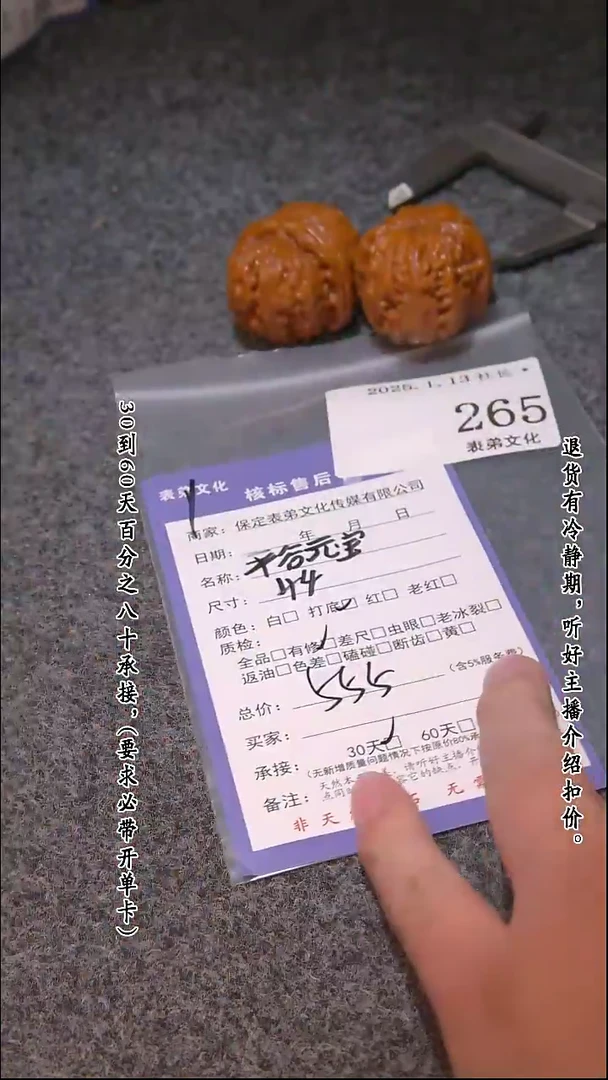 2025.1.13
265
表弟文化
表弟文化 核标售后
商家：保定表弟文化传媒有限公司
日期： 年 月 日
名称：平谷元宝
尺寸：44
颜色：白□ 打底☑ 红□ 老红□
质检：
全品□有修☑差尺□虫眼□老冰裂□
返油□色差□磕碰□断齿□黄□
总价：555（含5%服务费）
买家：
承接：30天☑ 60天□
（无新增质量问题情况下按原价80%承
备注：
非天
无
30到60天百分之八十承接，（要求必带开单卡）
退货有冷静期，听好主播介绍扣价。